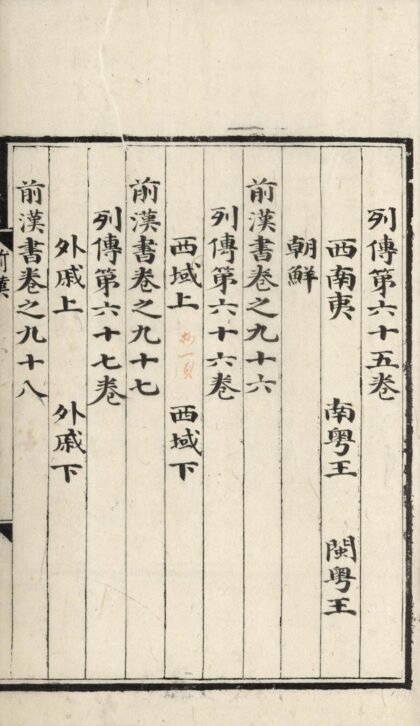 列傳第六十五卷
西南夷 南粤王 閩粤王
朝鮮
前漢書卷之九十六
列傳第六十六卷
西域上 西域下
前漢書卷之九十七
列傳第六十七卷
外戚上 外戚下
前漢書卷之九十八
前漢